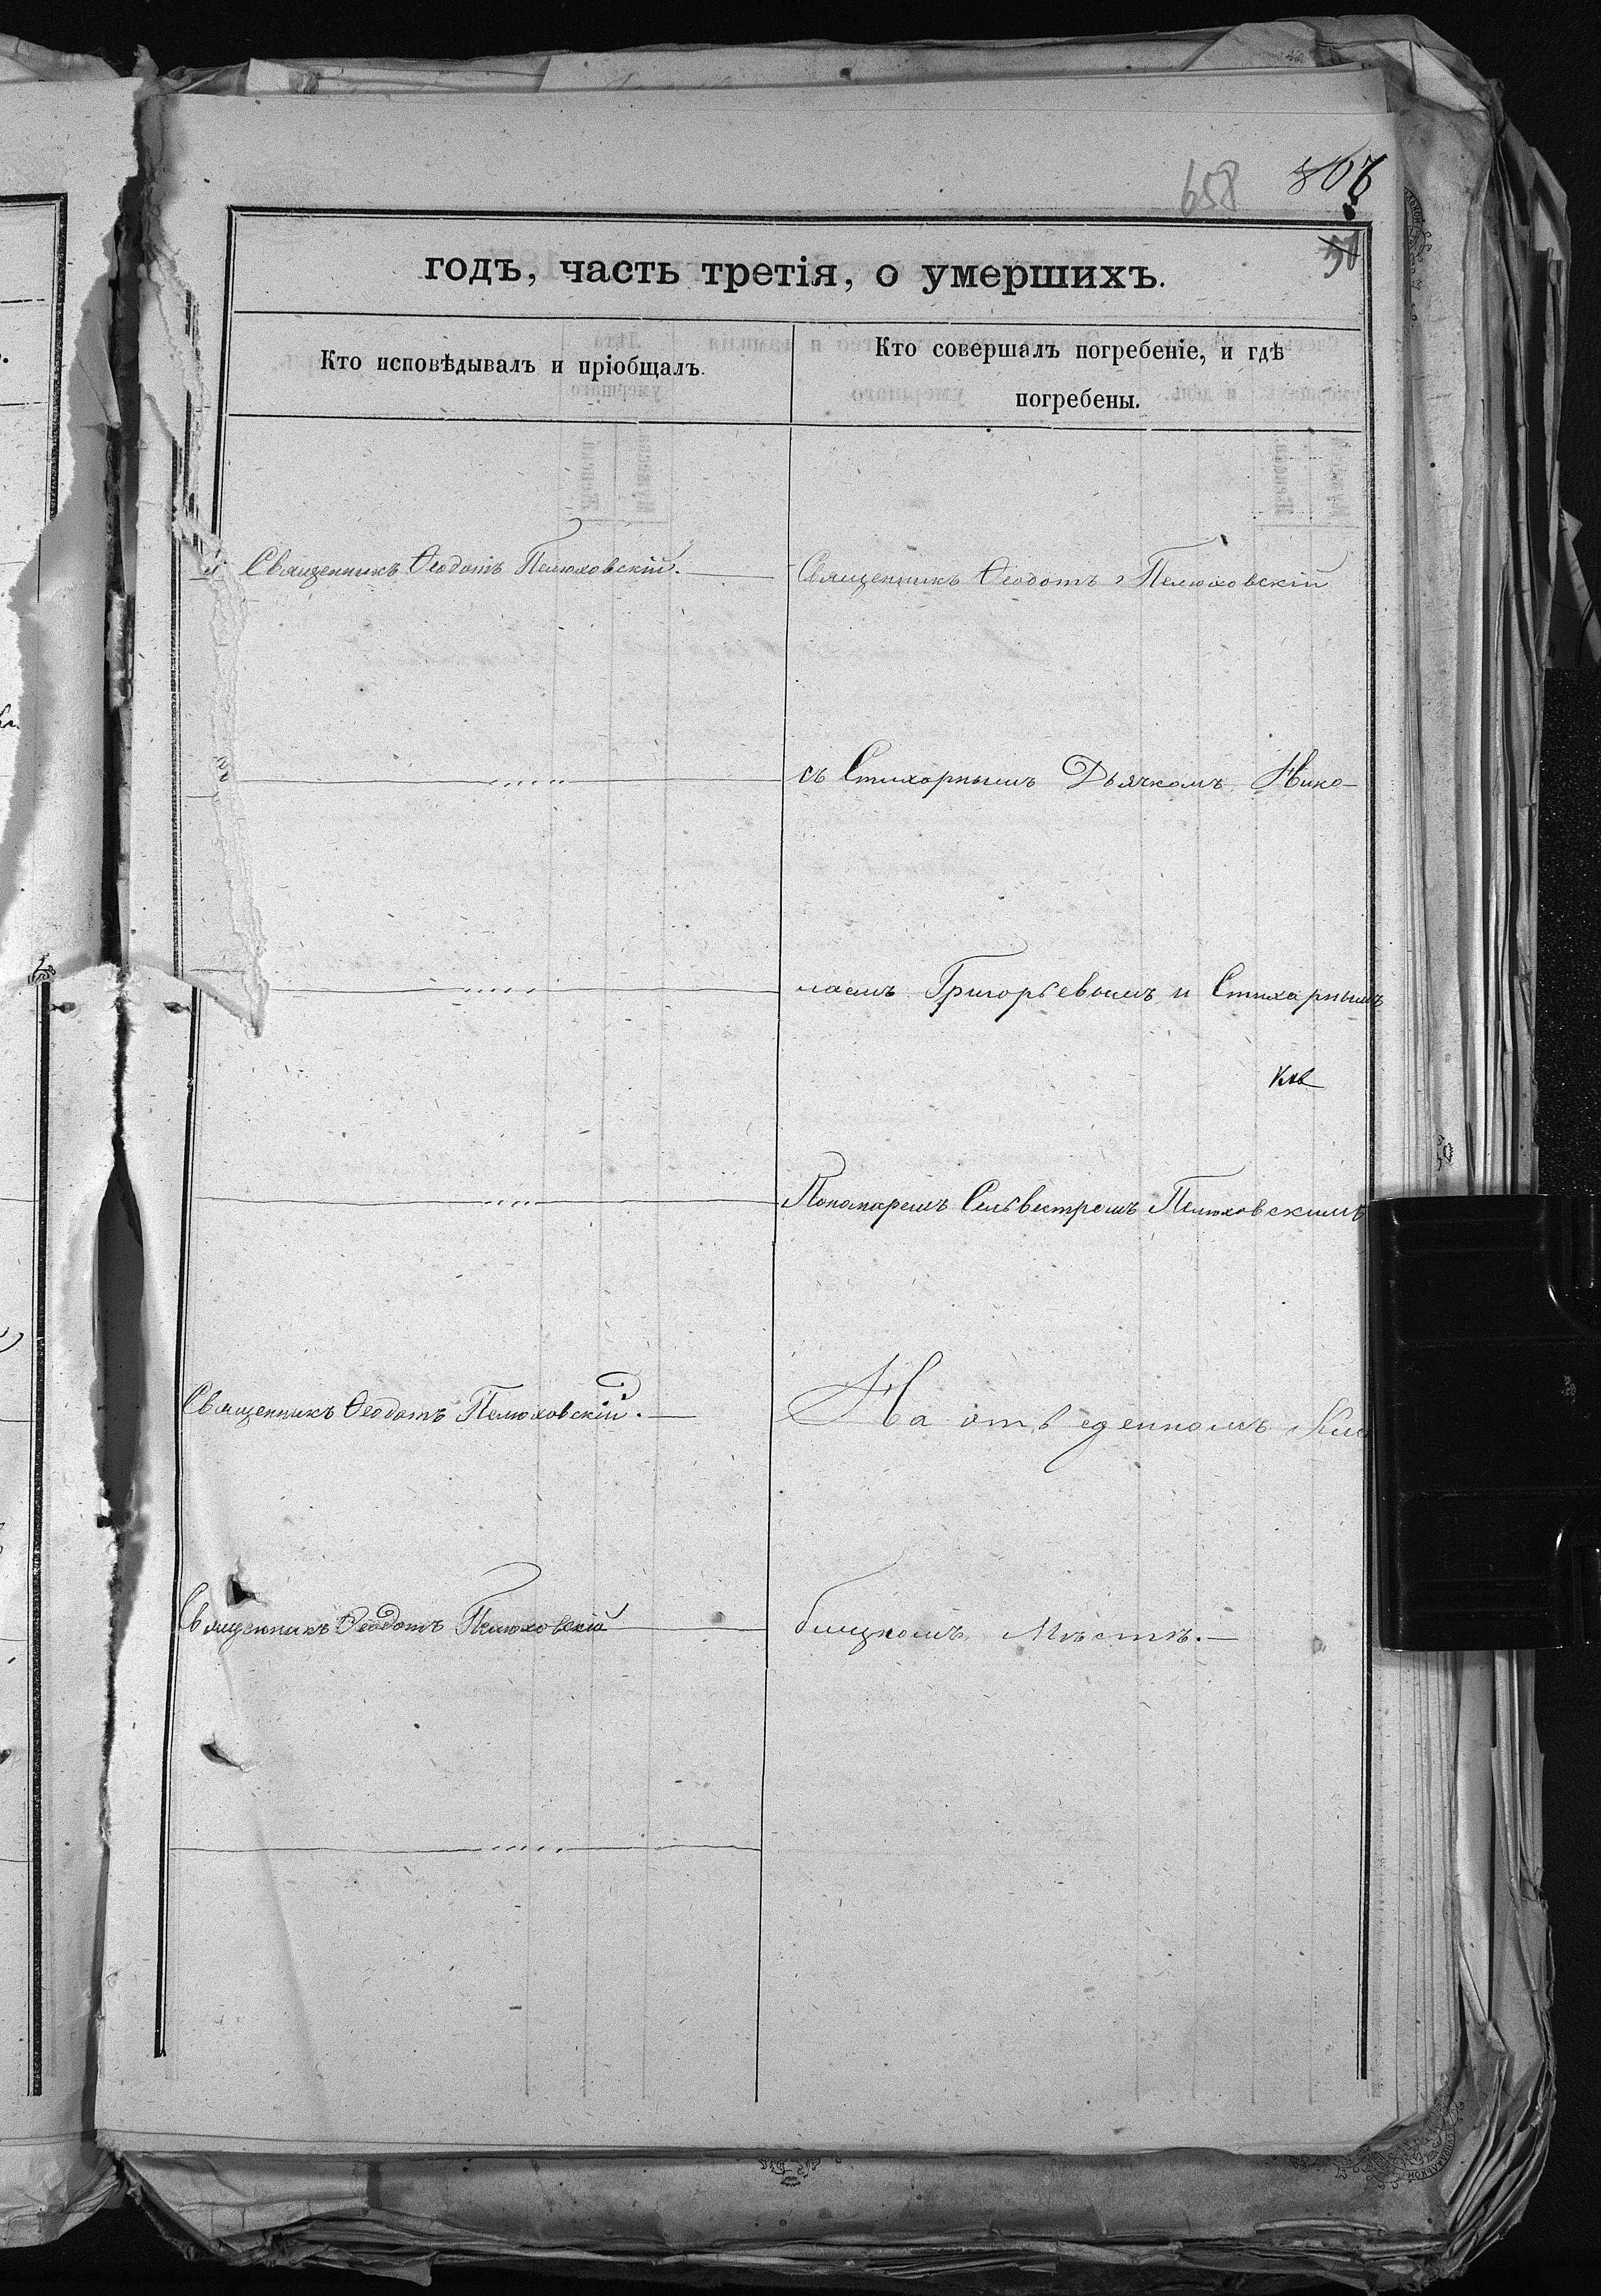 658
807
годъ, часть третія, о умершихъ.
Кто исповѣдывалъ и пріобщалъ.
Кто совершалъ погребеніе, и гдѣ
погребены.
Священникъ Ѳеодотъ Пелюховскій.
Священникъ Ѳеодотъ Пелюховскій
съ Стихорнымъ Дьячкомъ Нико-
лаемъ Григорьевымъ и Стихарнымъ
Пономаремъ Сельвестремъ Пелюховскимъ
Священникъ Ѳеодотъ Пелюховскій.
На отведенномъ Кла
Священникъ Ѳеодотъ Пелюховскій
бищномъ Мѣстѣ.